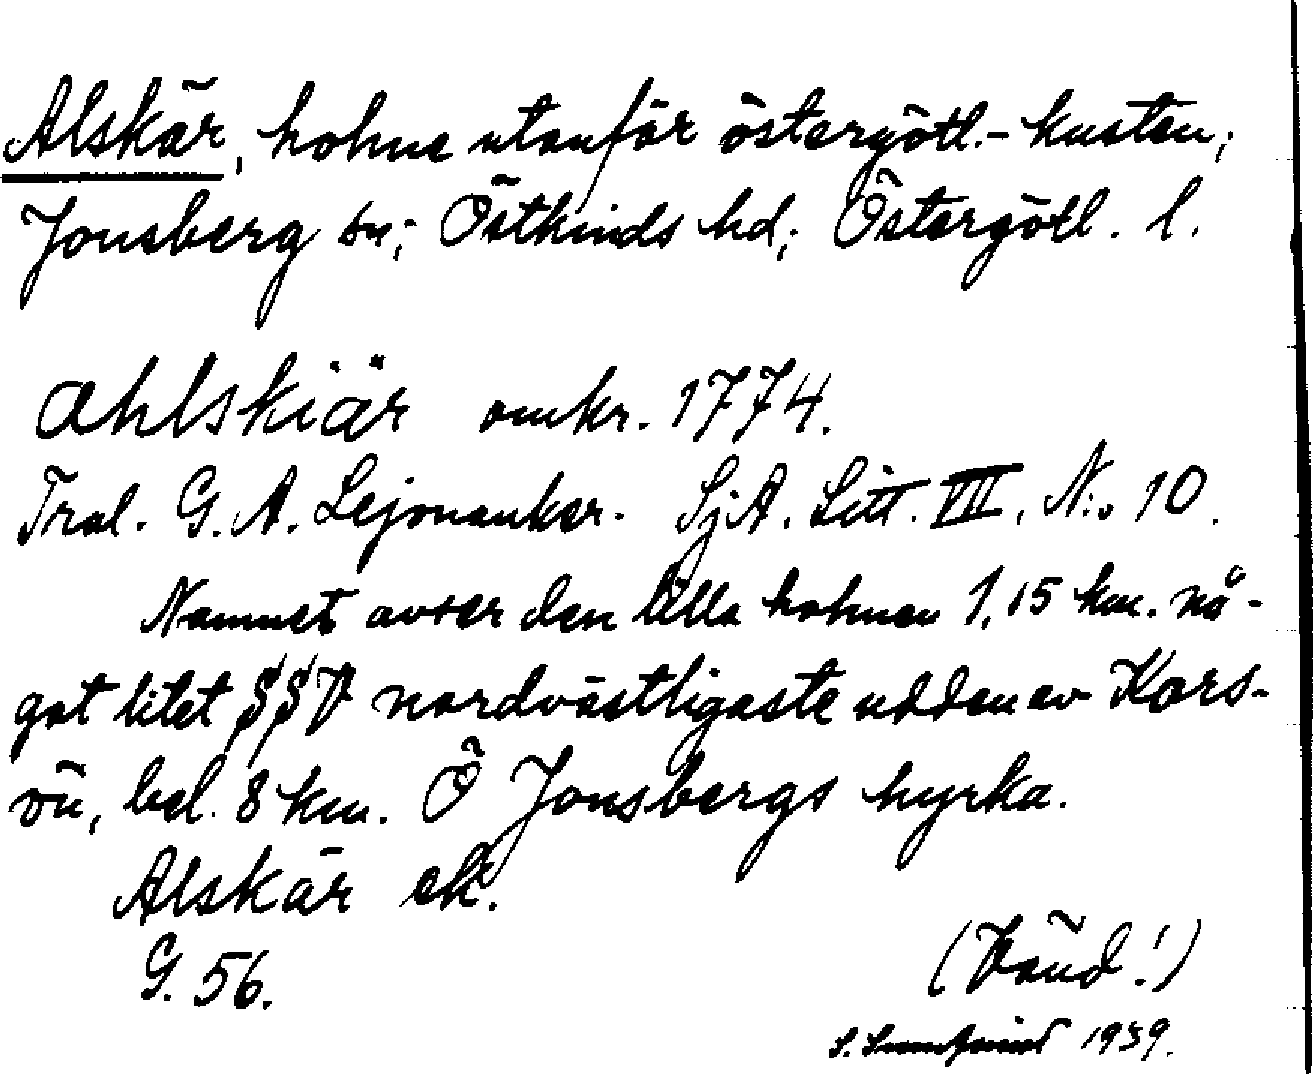 Alskär, holme utanför östergötl.-kusten;
Jonsberg sn; Östkinds hd; Östergötl. l.
Ahlskiär omkr. 1774.
Trol. G. A. Lejonanker. SjA. Litt. VII, N:o 10.
Namnet avser den lilla holmen 1,15 km. nå-
got litet SSV nordvästligaste udden av Kors-
ön, bel. 8 km. Ö Jonsbergs kyrka.
Alskär ek.
G. 56.
(Vänd!)
S. 1939.